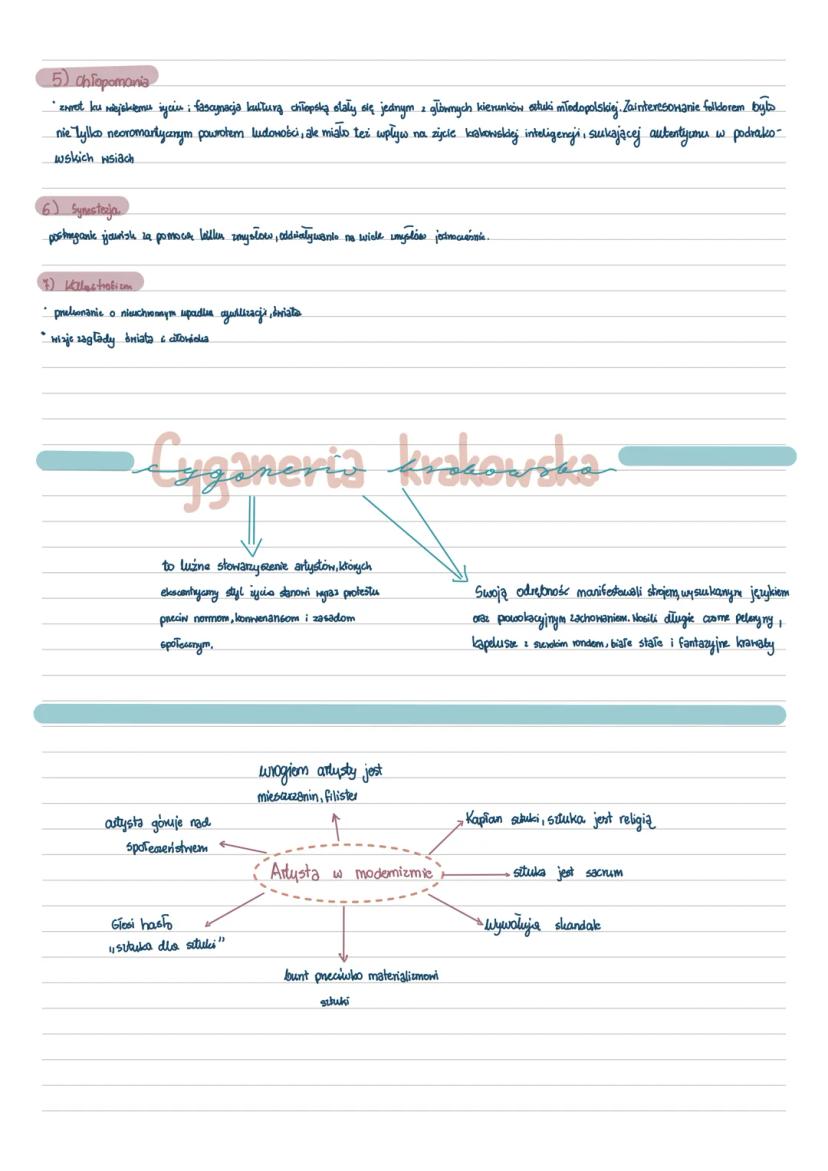 5) Chłopomania
• zwrot ku wiejskiemu życiu i fascynacja kulturą chłopską stały się jednym z głównych kierunków sztuki młodopolskiej. Zainteresowanie folklorem było
nie tylko neoromantycznym powrotem ludowości, ale miało też wpływ na życie krakowskiej inteligencji, szukającej autentyzmu w podkrako-
wskich wsiach
6) Synestezja
postrzeganie zjawisk za pomocą kilku zmysłów, oddziaływanie na wiele zmysłów jednocześnie.
7) Katastrofizm
• przekonanie o nieuchronnym upadku cywilizacji, świata
• wizje zagłady świata i człowieka
Cyganeria krakowska
to luźne stowarzyszenie artystów, których
ekscentryczny styl życia stanowi wyraz protestu
przeciw normom, konwenansom i zasadom
społecznym.
Swoją odrębność manifestowali strojem, wyszukanym językiem
oraz prowokacyjnym zachowaniem. Nosili długie czarne peleryny,
kapelusze z szerokim rondem, białe szale i fantazyjne krawaty
wrogiem artysty jest
mieszczanin, filister
artysta góruje nad
społeczeństwem
Kapłan sztuki, sztuka jest religią
Artysta w modernizmie
sztuka jest sacrum
Głosi hasło
„sztuka dla sztuki"
Wywołują skandale
bunt przeciwko materializmowi
sztuki